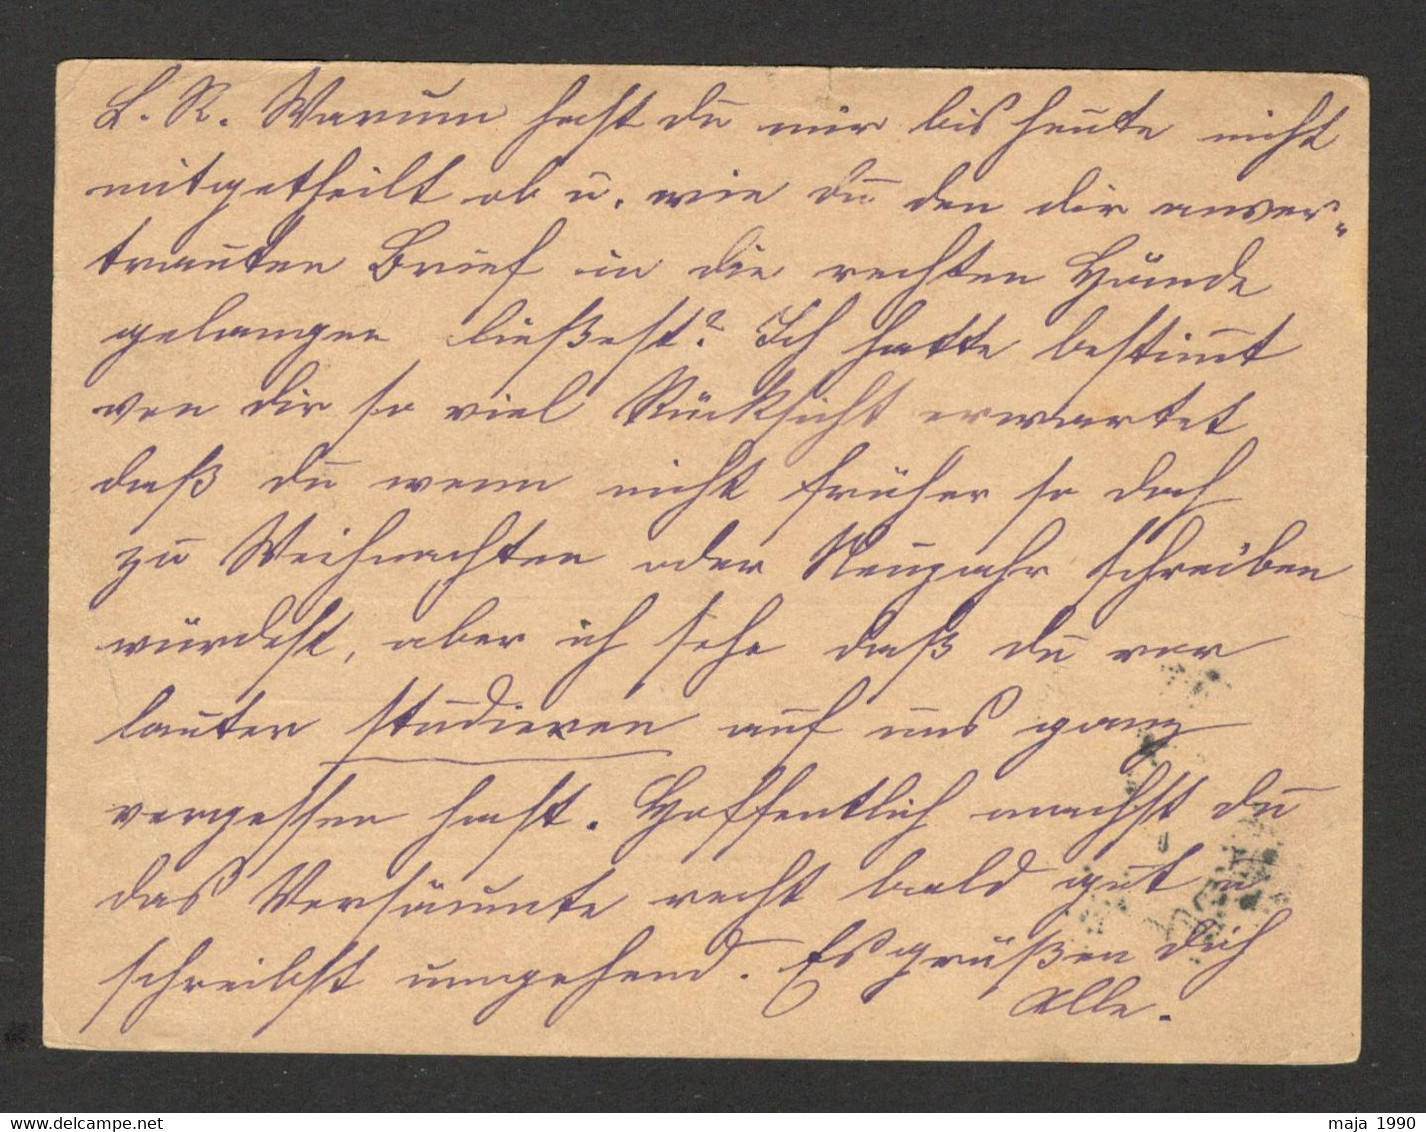 L. R. Warum hast du mir bis heute nicht
mitgetheilt ob u. wie du den dir anver-
trauten Brief in die rechten Hände
gelangen ließest? Ich hatte bestimmt
von dir so viel Rücksicht erwartet
daß du wenn nicht früher so doch
zu Weihnachten oder Neujahr schreiben
würdest, aber ich sehe daß du vor
lauter studieren auf uns ganz
vergessen hast. Hoffentlich machst du
das Versäumte recht bald gut u
schreibst umgehend. Es grüßen dich
Alle.
maja 1990